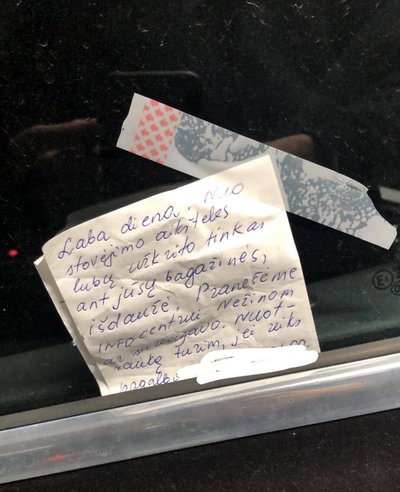 Laba diena, Nuo
stovėjimo aikštelės
lubų užkrito tinkas
ant jūsų bagažinės,
išdaužė. Pranešėme
INFO centrui. Nežinom
ar sureagavo. Nuot-
rauką turim, jei reiks